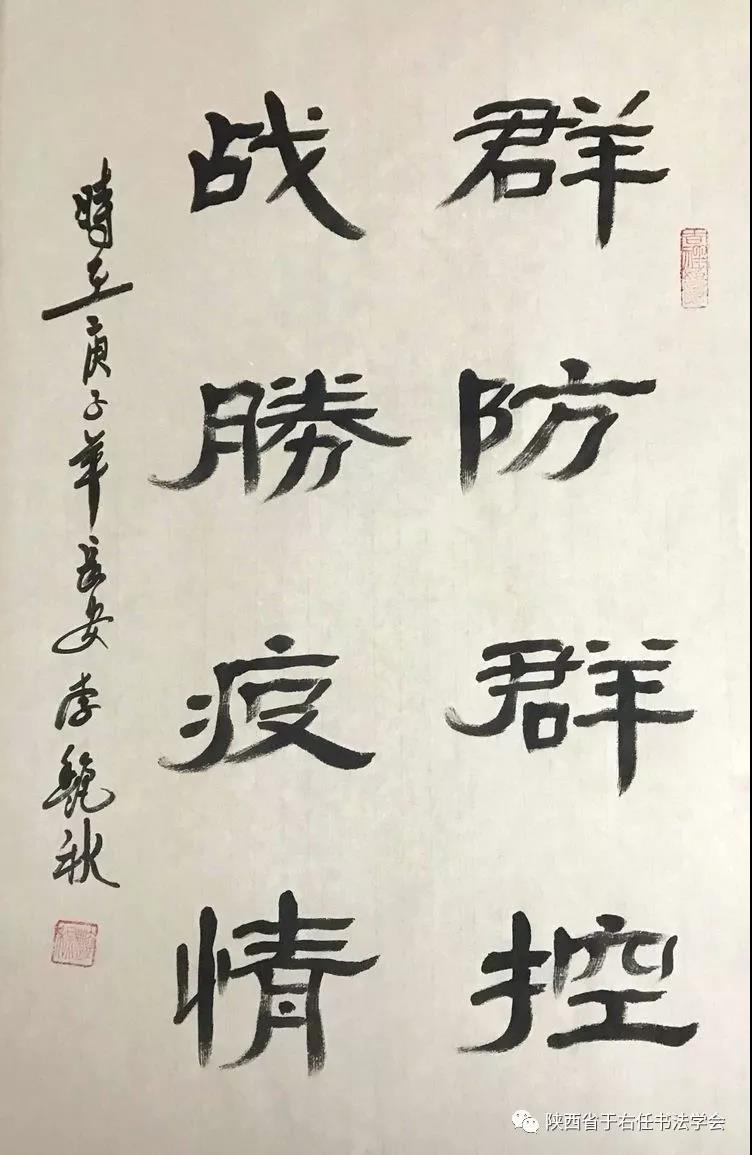 群防群控
战勝疫情
時在庚子年長安李艶秋
陕西省于右任书法学会